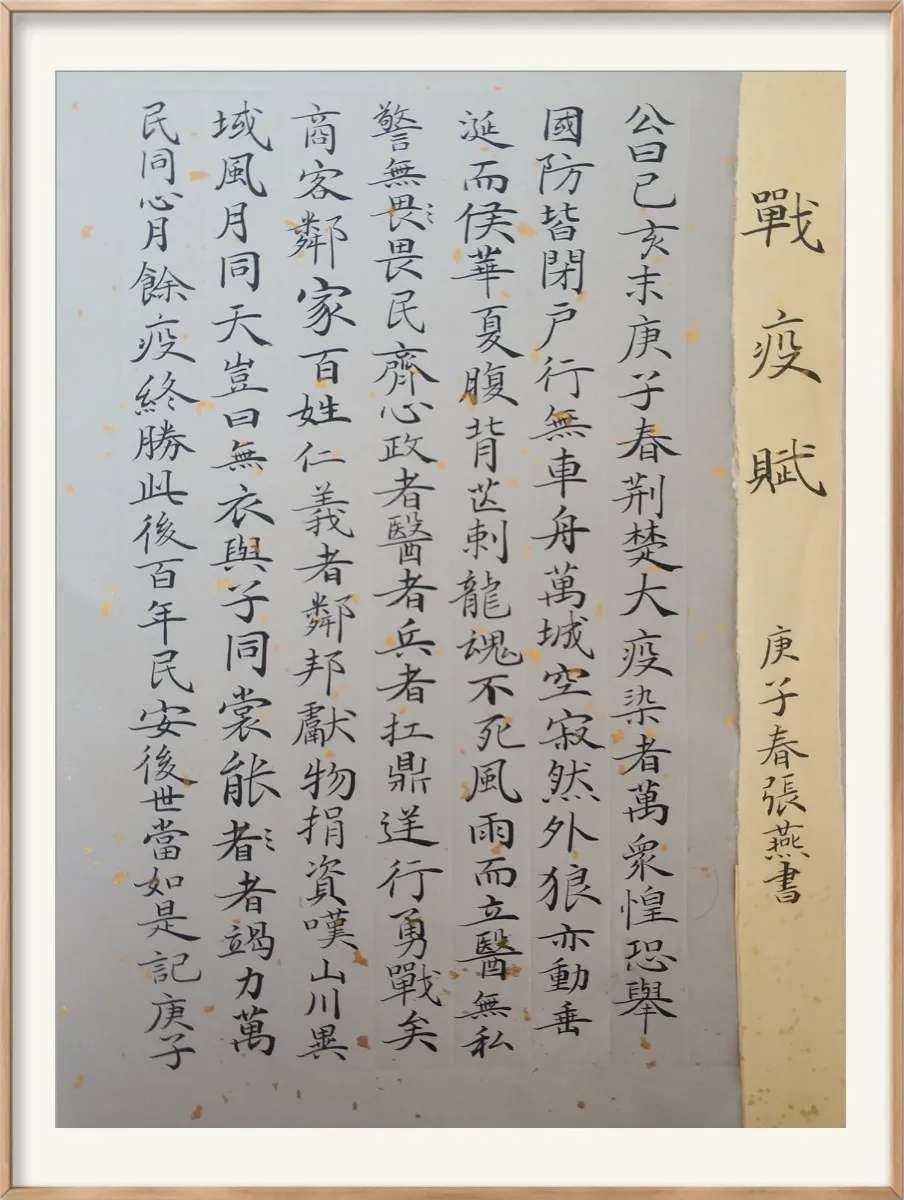 戰疫賦
庚子春張燕書
公曰已亥末庚子春荆楚大疫染者萬衆惶恐舉
國防皆閉戶行無車舟萬城空寂然外狼亦動垂
涎而侯華夏腹背芒刺龍魂不死風雨而立醫無私
警無畏〻畏民齊心政者醫者兵者扛鼎逆行勇戰矣
商客鄰家百姓仁義者鄰邦獻物捐資嘆山川異
域風月同天豈曰無衣與子同裳能者〻者竭力萬
民同心月餘疫終勝此後百年民安後世當如是記庚子